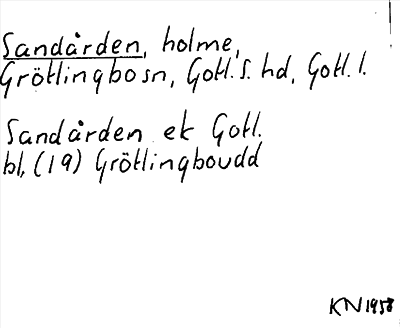 Sandården, holme,
Grötlingbosn, Gotl. s. hd, Gotl. l.
Sandården ek Gotl.
bl. (19) Grötlingboudd
KN 1958